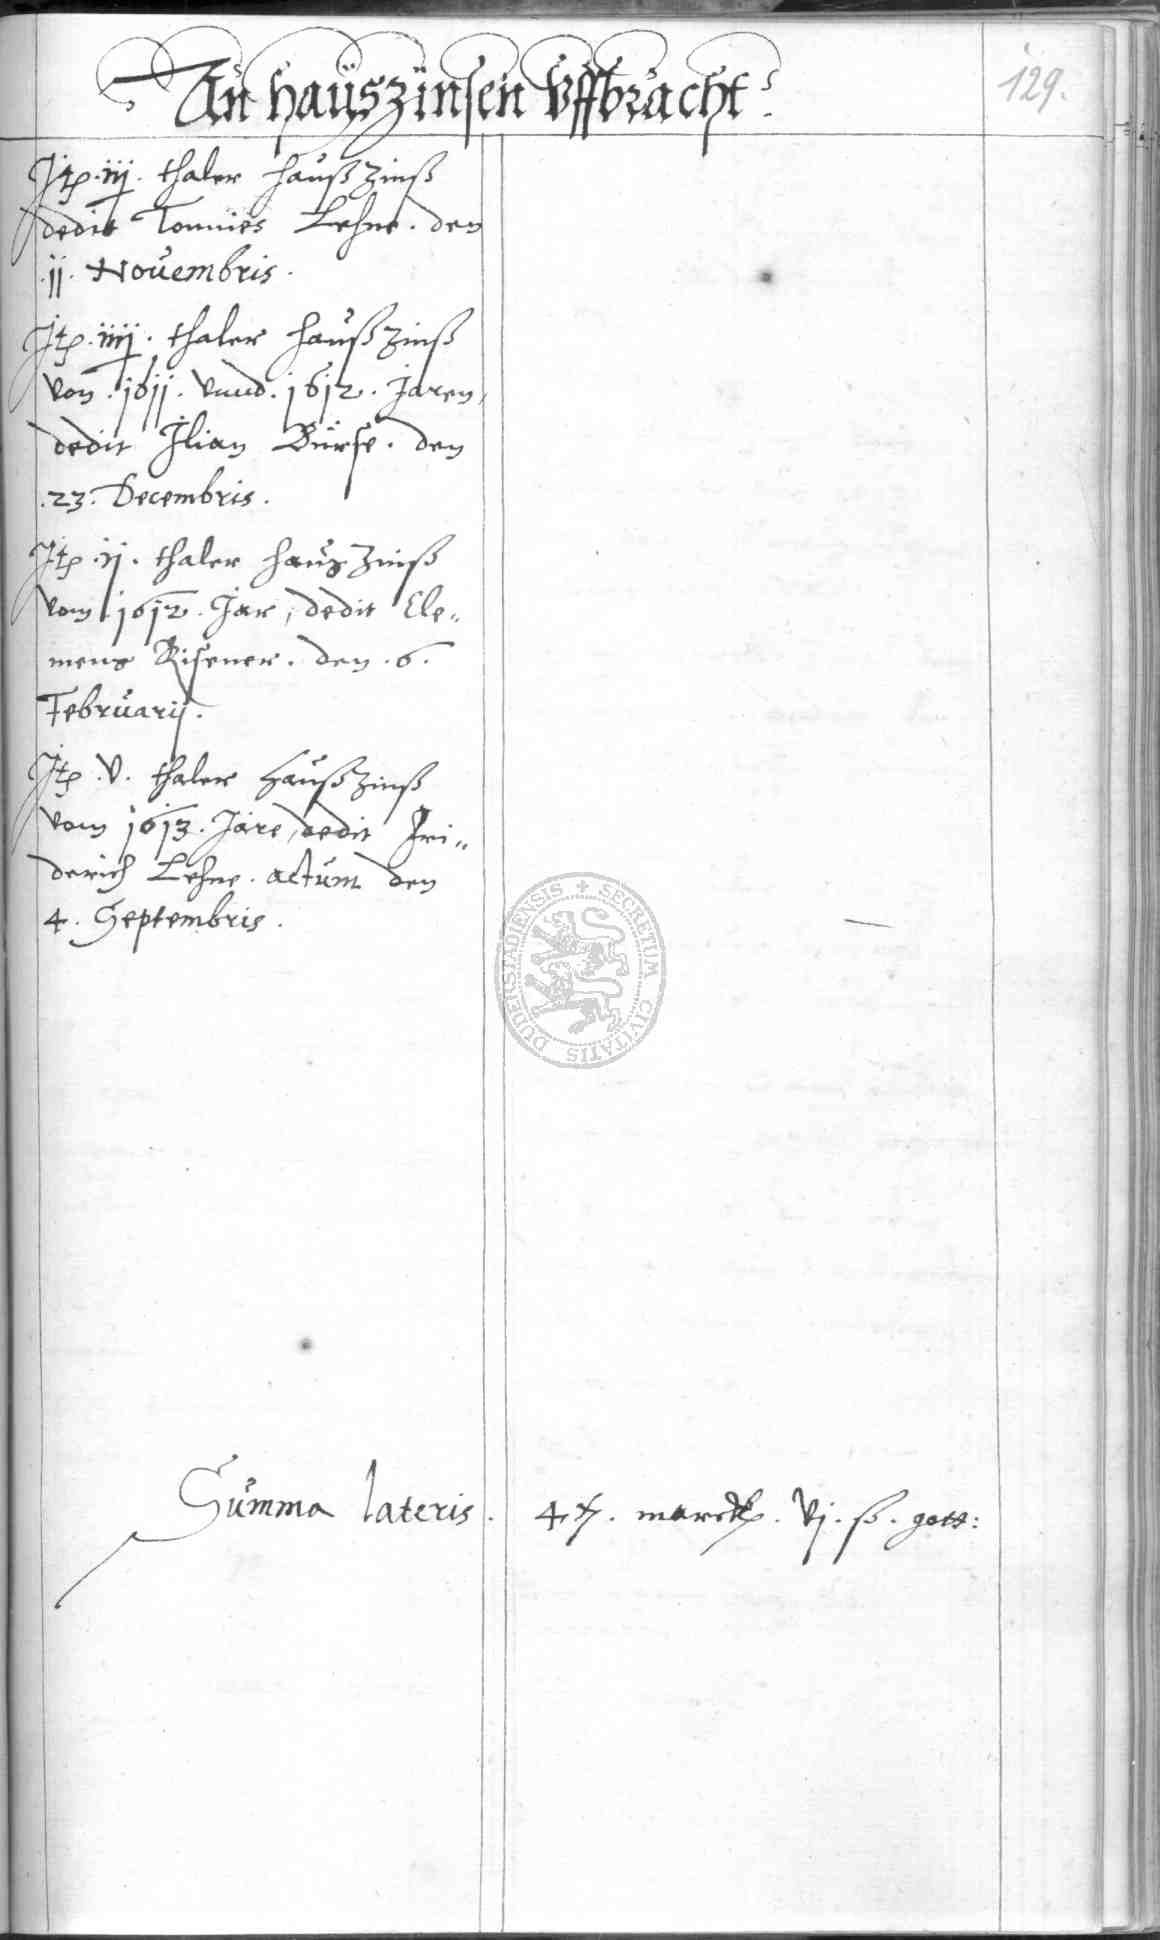 An haüszinsen Uffbracht.
129.
Jtp. iij. thaler haußzinß
dedit Tonnies Lehne. den
.11. Novembris.
Jtp. iiij. thaler haußzinß
von .1611. vnnd. 1612. Jaren,
dedit Jlian Bürse. den
.23. Decembris.
Jtp. ij. thaler hauszinß
vom 1612. Jar, dedit Cle„
mens Risener. den .6.
Februarij.
Jtp. v. thaler haußzinß
vom 1613. Jare, dedit Fri„
derich Lehne. actum den
4. Septembris.
DUDERSTADIENSIS + SECRETUM CIVITATIS
Summa lateris. marck. vj. ß. gott: